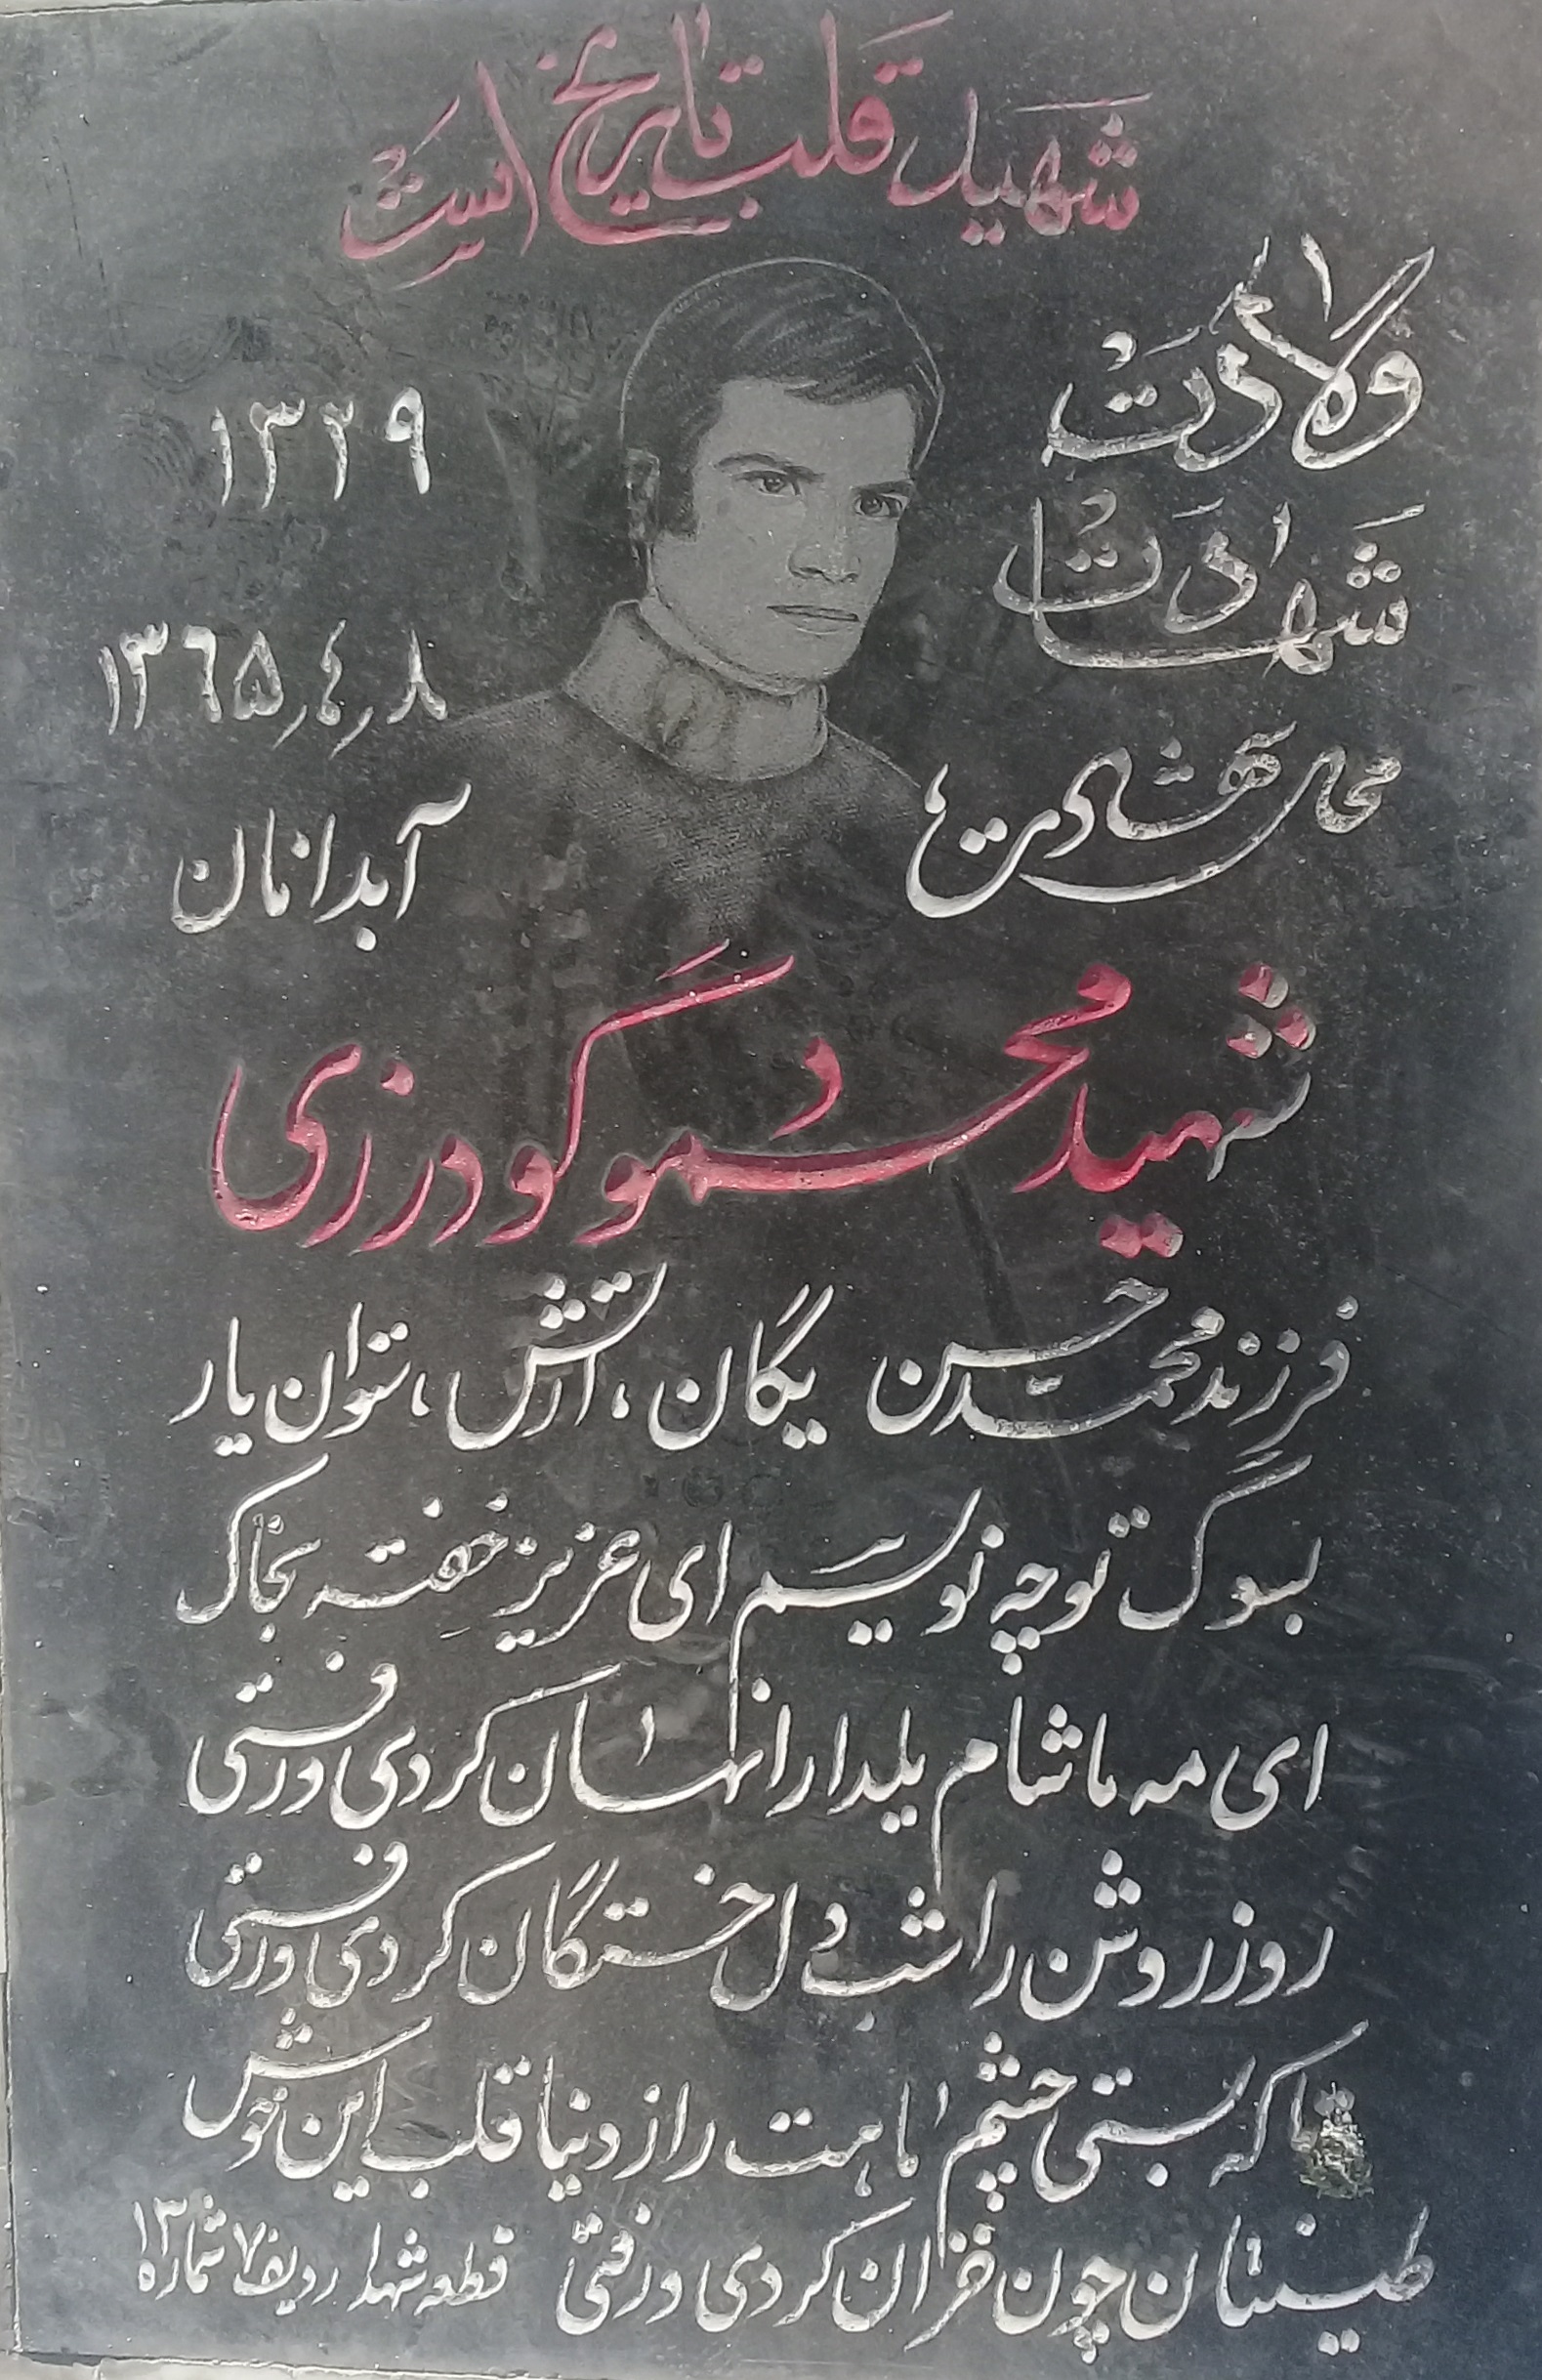 شهید قلب تاریخ است
ولادت ۱۳۲۹
شهادت ۸ر۴ر۱۳۶۵
محل شهادت آبدانان
شهید محمود گودرزی
فرزند محمد حسن یگان، ارتش، ستوان یار
بسوگ تو چه نویسم ای عزیز خفته بخاک
ای مه ما شام یلدا را نهان کردی و رفتی
روز روشن را شب دل خستگان کردی و رفتی
تا که بستی چشم ماهت را ز دنیا قلب این خوش
طینتان چون خزان کردی و رفتی قطعه شهدا ردیف ۷ شماره ۱۳